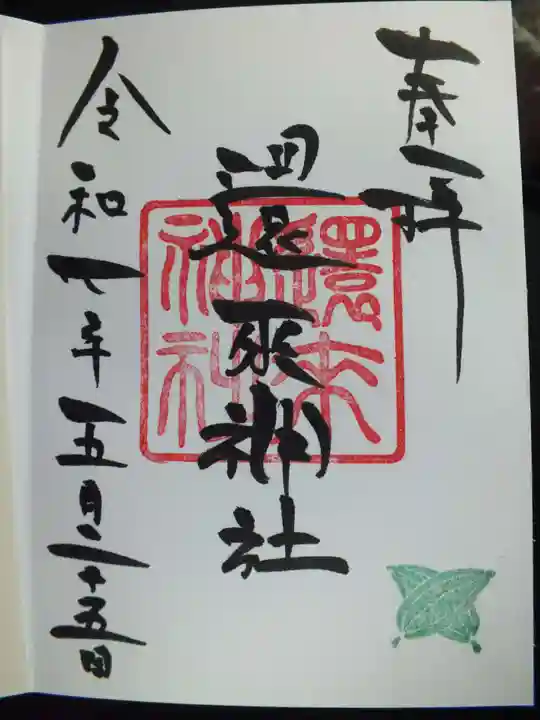 奉拝
還来神社
還来神社
令和七年五月二十五日